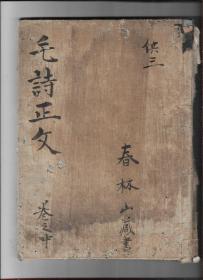 共三
春林山蔵書
毛詩正文
巻之中